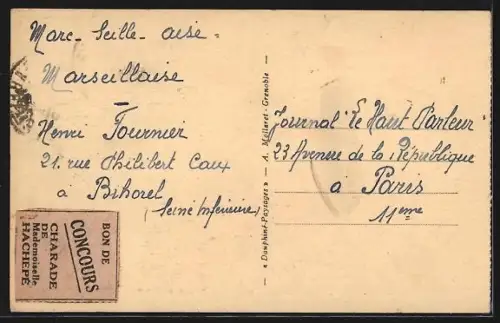 Marc - Seille - aise -
Marseillaise
-
Henri Fournier
21. rue Philibert Caux
à Bihorel
Seine Inférieure
BON DE
CONCOURS
CHARADE
DE
Mademoiselle
HACHEPÉ
« Dauphiné-Paysages » - A. Mollaret - Grenoble -
Journal Le Haut Parleur
23 Avenue de la République
à Paris
11eme